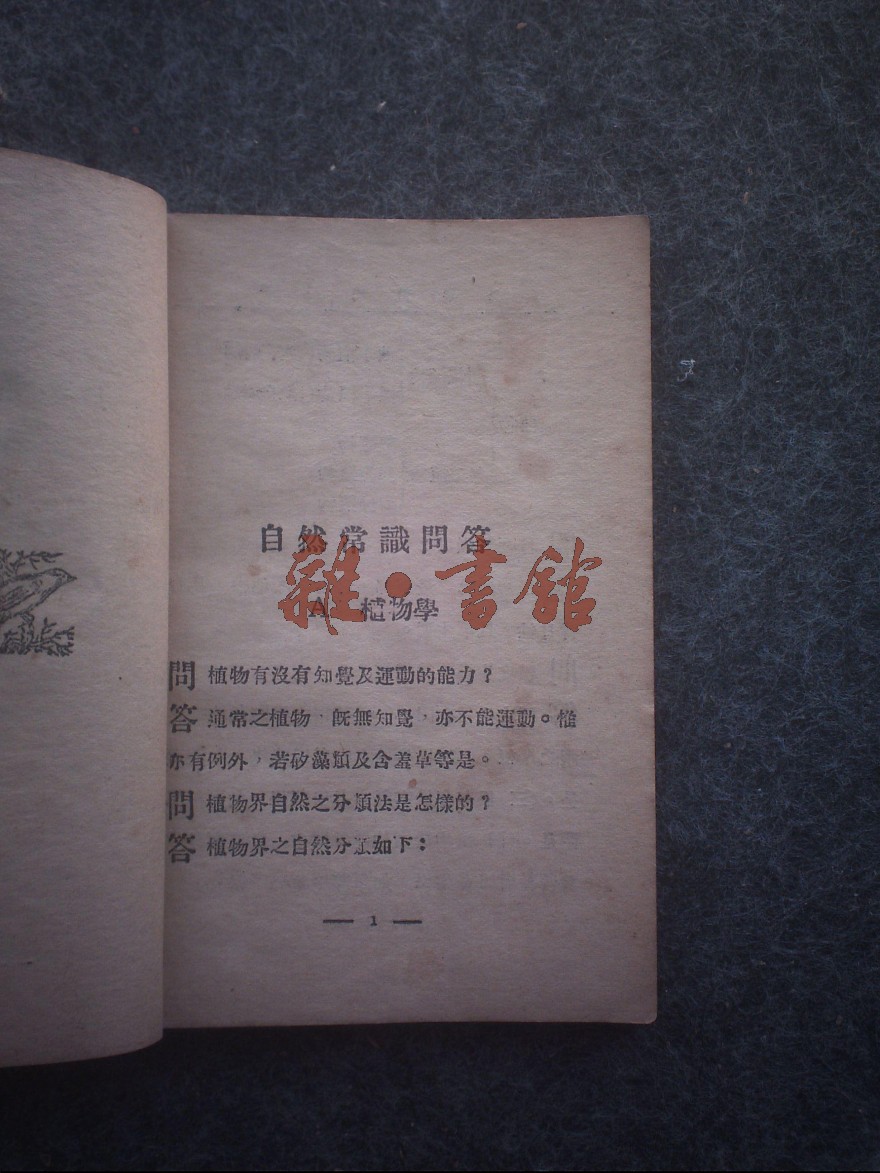 自然常識問答
雜·書館
A 植物學
問 植物有沒有知覺及運動的能力？
答 通常之植物，旣無知覺，亦不能運動。惟
亦有例外，若矽藻類及含羞草等是。
問 植物界自然之分類法是怎樣的？
答 植物界之自然分類如下：
— 1 —